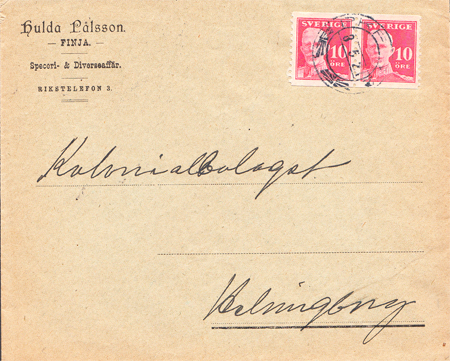 Hulda Pålsson.
FINJA.
Speceri- & Diverseaffär.
RIKSTELEFON 3.
SVERIGE SVERIGE
10 10
ÖRE ÖRE
Kolonialbolaget
Helsingborg